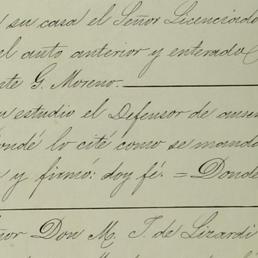 su casa el Señor Licenciado
el auto anterior y enterado
nte G. Moreno.
estudio el Defensor de ausen
ondé lo cité como se manda
y firmó: doy fé. = Donde
ñor Don M. J. de Lizardi